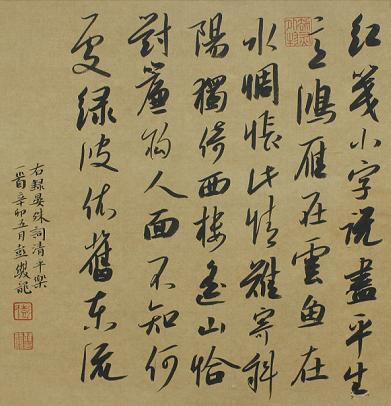 紅箋小字說盡平生
意鴻雁在雲魚在
水惆悵此情難寄斜
陽獨倚西樓遙山恰
對簾鈎人面不知何
處綠波依舊東流
右錄晏殊詞清平樂
一首辛卯五月